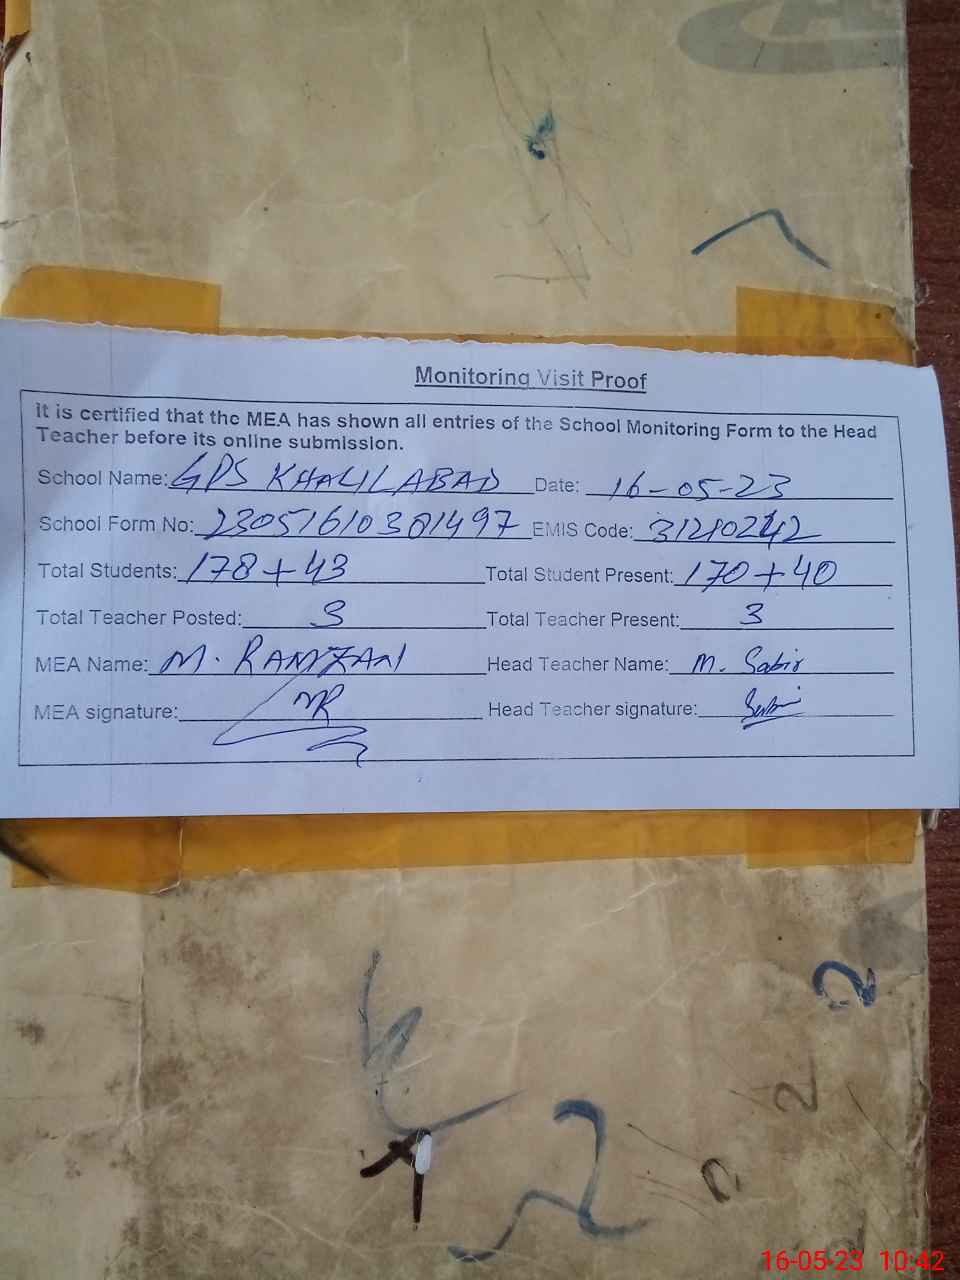 Monitoring Visit Proof
It is certified that the MEA has shown all entries of the School Monitoring Form to the Head
Teacher before its online submission.
School Name: GPS KHALILABAD Date: 16-05-23
School Form No: 23051610301497 EMIS Code: 31210242
Total Students: 178+43 Total Student Present: 170+40
Total Teacher Posted: 3 Total Teacher Present: 3
MEA Name: M. RAMZAN Head Teacher Name: M. Sabir
MEA signature: MR Head Teacher signature:
2
2
2
2
16-05-23 10:42